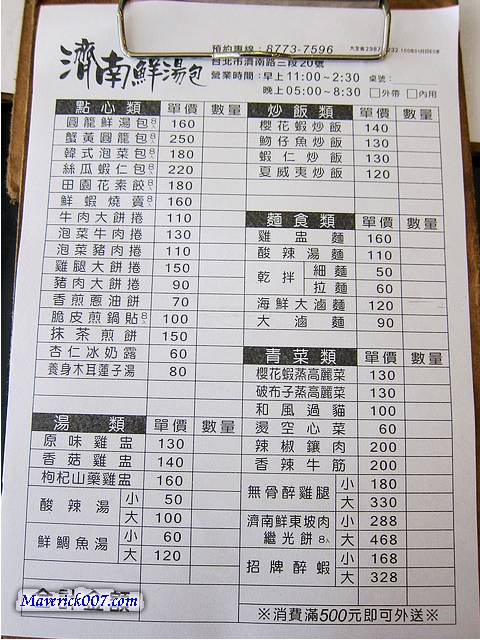 濟南鮮湯包
預約專線：8773-7596
台北市濟南路三段20號
營業時間：早上11:00～2:30 桌號：
晚上05:00～8:30 □外帶 □內用
點心類 單價 數量
圓籠鮮湯包8入 160
蟹黃圓籠包8入 250
韓式泡菜包8入 180
絲瓜蝦仁包8入 220
田園花素餃8入 180
鮮蝦燒賣8入 160
牛肉大餅捲 110
泡菜牛肉捲 130
泡菜豬肉捲 110
雞腿大餅捲 150
豬肉大餅捲 90
香煎蔥油餅 70
脆皮煎鍋貼8入 100
抹茶煎餅 150
杏仁冰奶露 60
養身木耳蓮子湯 80
湯類 單價 數量
原味雞盅 130
香菇雞盅 140
枸杞山藥雞盅 160
酸辣湯 小 50
大 100
鮮鯛魚湯 小 60
大 120
合計金額
炒飯類 單價 數量
櫻花蝦炒飯 140
魩仔魚炒飯 130
蝦仁炒飯 130
夏威夷炒飯 120
麵食類 單價 數量
雞盅麵 160
酸辣湯麵 110
乾拌 細麵 50
拉麵 60
海鮮大滷麵 120
大滷麵 90
青菜類 單價 數量
櫻花蝦蒸高麗菜 130
破布子蒸高麗菜 130
和風過貓 100
燙空心菜 60
辣椒鑲肉 200
香辣牛筋 200
無骨醉雞腿 小 180
大 330
濟南鮮東坡肉 小 288
繼光餅8入 大 468
招牌醉蝦 小 168
大 328
※消費滿500元即可外送※
Maverick007.com